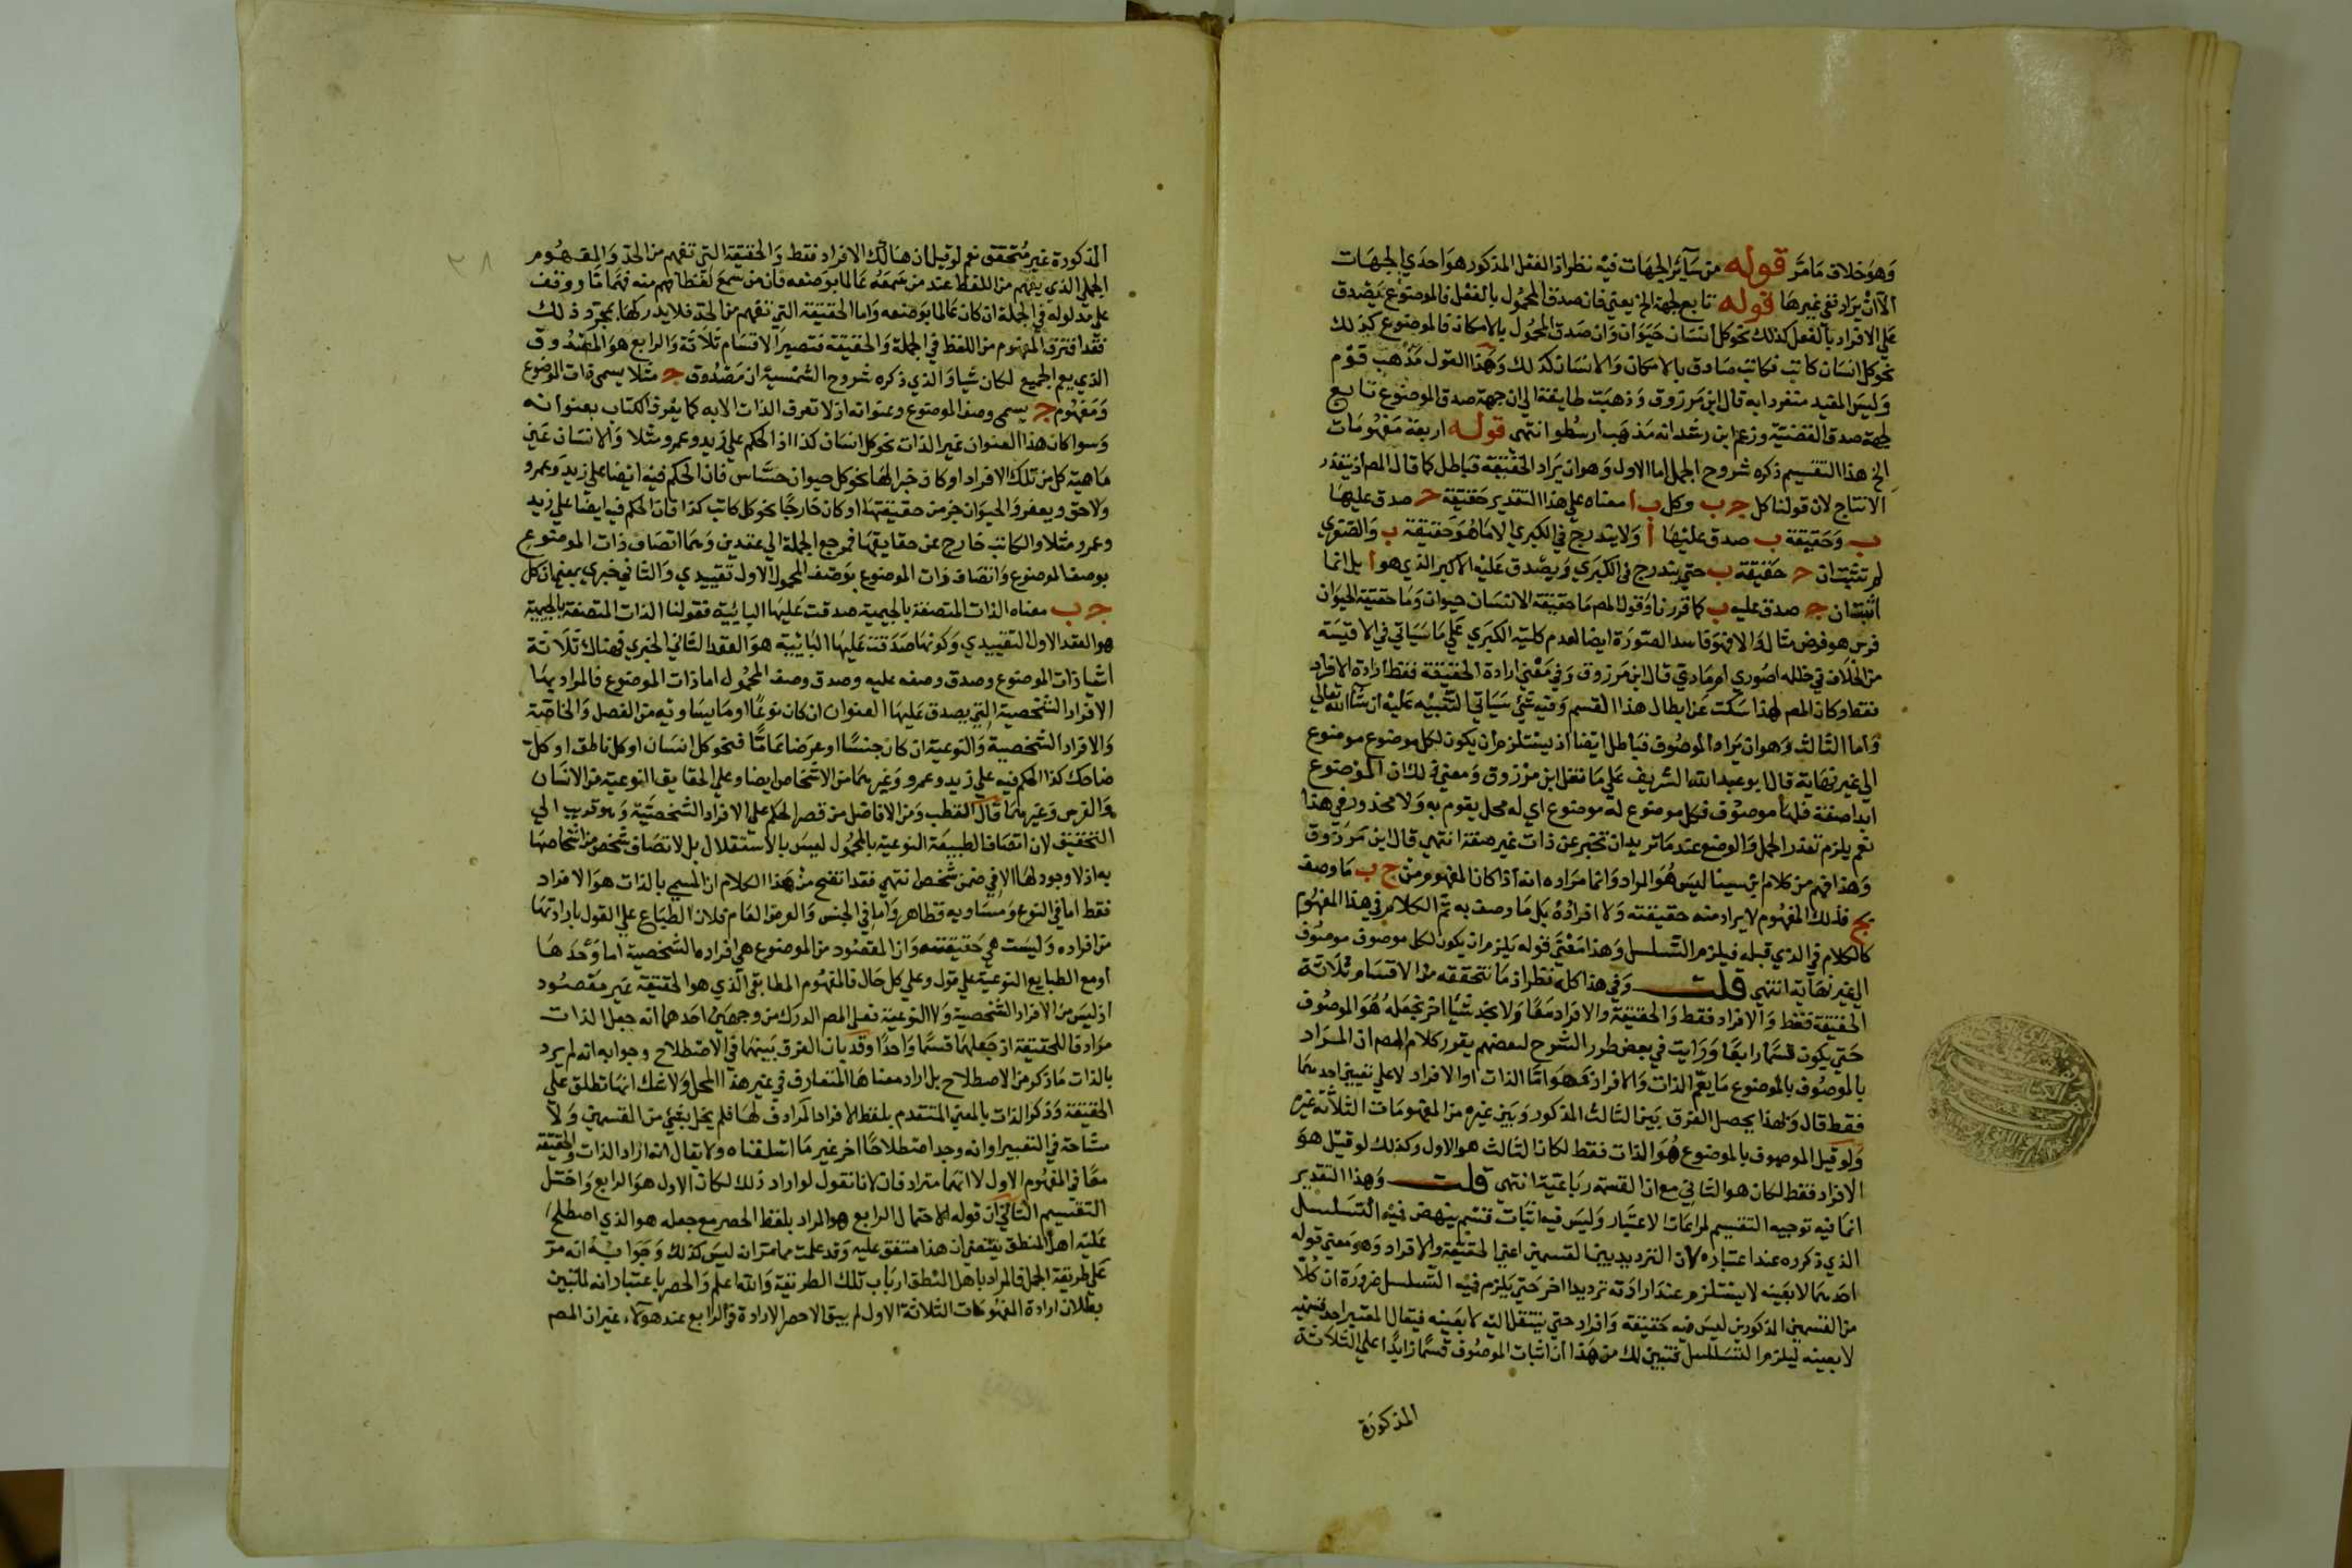 وهو خلاف ما مر قوله من سائر الجهات فيه نظر اذ الفعل المذكور هو احدي الجهات
الا ان يراد نفي غيرها قوله تابع لجهة الخ يعني فان صدق المحمول بالفعل فالموضوع يصدق
علي الافراد بالفعل كذلك نحو كل انسان حيوان وان صدق المحمول بالامكان فالموضوع كذلك
نحو كل انسان كاتب فكاتب صادق بالامكان والانسان كذلك وهذا القول مذهب قوم
وليس المقيد متفردا به قال ابن مرزوق وذهبت طايفة الي ان جهة صدق الموضوع تابع
لجهة صدق القضية وزعم ابن رشد انه مذهب ارسطو انتهي قوله اربعة مفهومات
الخ هذا التقسيم ذكره شروح الجمل اما الاول وهو ان يراد الحقيقة فباطل كما قال المص اذ يتعذر
الانتاج لان قولنا كل ج ب وكل ب ا معناه علي هذا التقدير حقيقة ج صدق عليها
ب وحقيقة ب صدق عليها ا ولا يندرج في الكبري الا ما هو حقيقة ب والصغري
لم تثبت ان ج حقيقة ب حتي يندرج في الكبري ويصدق عليه الاكبر الذي هو ا بل انما
اثبت ان ج صدق عليه ب كما قررنا وقول المص ما حقيقة الانسان حيوان وما حقيقة الحيوان
فرس هو فرض مثال والا فهو فاسد الصورة ايضا لعدم كلية الكبري علي ما سياتي في الاقيسة
من الخلاف في خلله اصوري ام مادي قال ابن مرزوق وفي معني ارادة الحقيقة فقط ارادة الافراد
فقط وكان المص لهذا سكت عن ابطال هذا القسم وفيه شي سياتي التنبيه عليه ان شا الله تعالي
واما الثالث وهو ان يراد الموصوف فباطل ايضا اذ يستلزم ان يكون لكل موضوع موضوع
الي غير نهاية قال ابو عبد الله الشريف علي ما نقل ابن مرزوق ومعني ذلك ان الموضوع
ابدا صفة فلها موصوف فكل موضوع له موضوع اي له محل يقوم به ولا محذور في هذا
نعم يلزم تعذر الحمل والوضع عند ما تريد ان تخبر عن ذات غير صفة انتهي قال ابن مرزوق
وهذا فهم من كلام ابن سينا ليس هو المراد وانما مراده انه اذا كان المفهوم من ج ب ما وصف
بج فذلك المفهوم لا يراد منه حقيقته ولا افراده بل ما وصف به ثم الكلام في هذا المفهوم
كالكلام في الذي قبله فيلزم التسلسل وهذا معني قوله يلزم ان يكون لكل موصوف موصوف
الي غير نهاية انتهي قلت وفي هذا كله نظر اذ ما نتحققه من الاقسام ثلاثة
الحقيقة فقط والافراد فقط والحقيقة والافراد معا ولا نجد شيا اخر نجعله هو الموصوف
حتي يكون قسما رابعا ورايت في بعض طرر الشرح لبعضهم يقرر كلام المص ان المراد
بالموصوف بالموضوع ما يعم الذات والافراد فهو اما الذات او الافراد لا علي تعيين احدهما
فقط قال ولهذا يحصل الفرق بين الثالث المذكور وبين غيره من المفهومات الثلاثة غيره
ولو قيل الموصوف بالموضوع هو الذات فقط لكان الثالث هو الاول وكذلك لو قيل هو
الافراد فقط لكان هو الثاني مع ان القسمة رباعية انتهي قلت وهذا التقدير
انما فيه توجيه التقسيم لمراعات الاعتبار وليس فيه اثبات قسم ينهض فيه التسلسل
الذي ذكره عند اعتباره لان الترديد بين القسمين اعني الحقيقة والافراد وهو معني قوله
احدهما لا بعينه لا يستلزم عند ارادته ترديدا اخر حتي يلزم فيه التسلسل ضرورة ان كلا
من القسمين المذكورين ليس فيه حقيقة وافراد حتي ينتقل اليه لا بعينه فيقال المعتبر احد قسميه
لا بعينه ليلزم التسلسل فتبين لك من هذا ان اثبات الموصوف قسما زايدا علي الثلاثة
المذكورة
المذكورة غير متحقق نعم لو قيل ان هنالك الافراد فقط والحقيقة التي تفهم من الحد والمفهوم
الجملي الذي يفهم من اللفظ عند من سمعه عالما بوضعه فان من سمع لفظا فهم منه فهما ما ووقف
علي مدلوله في الجملة ان كان عالما بوضعه واما الحقيقة التي تفهم من الحد فلا يدركها بمجرد ذلك
فقد افترق المفهوم من اللفظ في الجملة والحقيقة فتصير الاقسام ثلاثة والرابع هو المصدوق
الذي يعم الجميع لكان شيا والذي ذكره شروح الشمسية ان مصدوق ج مثلا يسمي ذات الموضوع
ومفهوم ج يسمي وصف الموضوع وعنوانه اذ لا تعرف الذات الا به كما يعرف الكتاب بعنوانه
وسوا كان هذا العنوان عين الذات نحو كل انسان كذا اذ الحكم علي زيد وعمرو مثلا والانسان عين
ماهية كل من تلك الافراد او كان جزا لها نحو كل حيوان حساس فان الحكم فيه ايضا علي زيد وعمرو
ولاحق ويعفور والحيوان جز من حقيقتها او كان خارجا نحو كل كاتب كذا فان الحكم فيه ايضا علي زيد
وعمرو مثلا والكاتب خارج عن حقايقها فمرجع الجملة الي عقدين وهما اتصاف ذات الموضوع
بوصف الموضوع واتصاف ذات الموضوع بوصف المحمول الاول تقييدي والثاني خبري بمعني ان كل
ج ب معناه الذات المتصفة بالجيمية صدقت عليها البائية فقولنا الذات المتصفة بالجيمية
هو العقد الاول التقييدي وكونها صدقت عليها البائية هو العقد الثاني الخبري فهناك ثلاثة
اشيا ذات الموضوع وصدق وصفه عليه وصدق وصف المحمول اما ذات الموضوع فالمراد بها
الافراد الشخصية التي يصدق عليها العنوان ان كان نوعا او ما يساويه من الفصل والخاصة
والافراد الشخصية والنوعية ان كان جنسا او عرضا عاما فنحو كل انسان او كل ناطق او كل
ضاحك كذا الحكم فيه علي زيد وعمرو وغيرهما من الاشخاص ايضا وعلي الحقايق النوعية من الانسان
والفرس وغيرهما قال القطب ومن الافاضل من قصر الحكم علي الافراد الشخصية وهو قريب الي
التحقيق لان اتصاف الطبيعة النوعية بالمحمول ليس بالاستقلال بل لاتصاف شخص من اشخاصها
به اذ لا وجود لها الا في ضمن شخص انتهي فقد اتضح من هذا الكلام ان المسمي بالذات هو الافراد
فقط اما في النوع ومساويه فظاهر واما في الجنس والعرض العام فلان الطباع علي القول بارادتها
من افراده وليست هي حقيقته وان المقصود من الموضوع هي افراده الشخصية اما وحدها
او مع الطبايع النوعية علي قول وعلي كل حال فالمفهوم المطابقي الذي هو الحقيقة غير مقصود
اذ ليس من الافراد الشخصية ولا النوعية فعلي المص الدرك من وجهين احدهما انه جعل الذات
مرادفا للحقيقة اذ جعلهما قسما واحدا وقد بان الفرق بينهما في الاصطلاح وجوابه انه لم يرد
بالذات ما ذكر من الاصطلاح بل اراد معناها المتعارف في غير هذا المحل ولا شك انها تطلق علي
الحقيقة وذكر الذات بالمعني المتقدم بلفظ الافراد المرادف لها فلم يخل بشي من القسمين ولا
مشاحة في التعبير او انه وجد اصطلاحا اخر غير ما اسلفناه ولا يقال انه اراد الذات والحقيقة
معا في المفهوم الاول لا انهما مترادفان لانا نقول لو اراد ذلك لكان الاول هو الرابع واختل
التقسيم الثاني ان قوله الاحتمال الرابع هو المراد بلفظ الحصر مع جعله هو الذي اصطلح
عليه اهل المنطق يقتضي ان هذا متفق عليه وقد علمت مما مر انه ليس كذلك وجوابه انه مر
علي طريقة الجمل فالمراد باهل المنطق ارباب تلك الطريقة والله اعلم والحصر باعتبار انه لما تبين
بطلان ارادة المفهومات الثلاثة الاول لم يبق الا حصر الارادة في الرابع عند هؤلاء غير ان المص